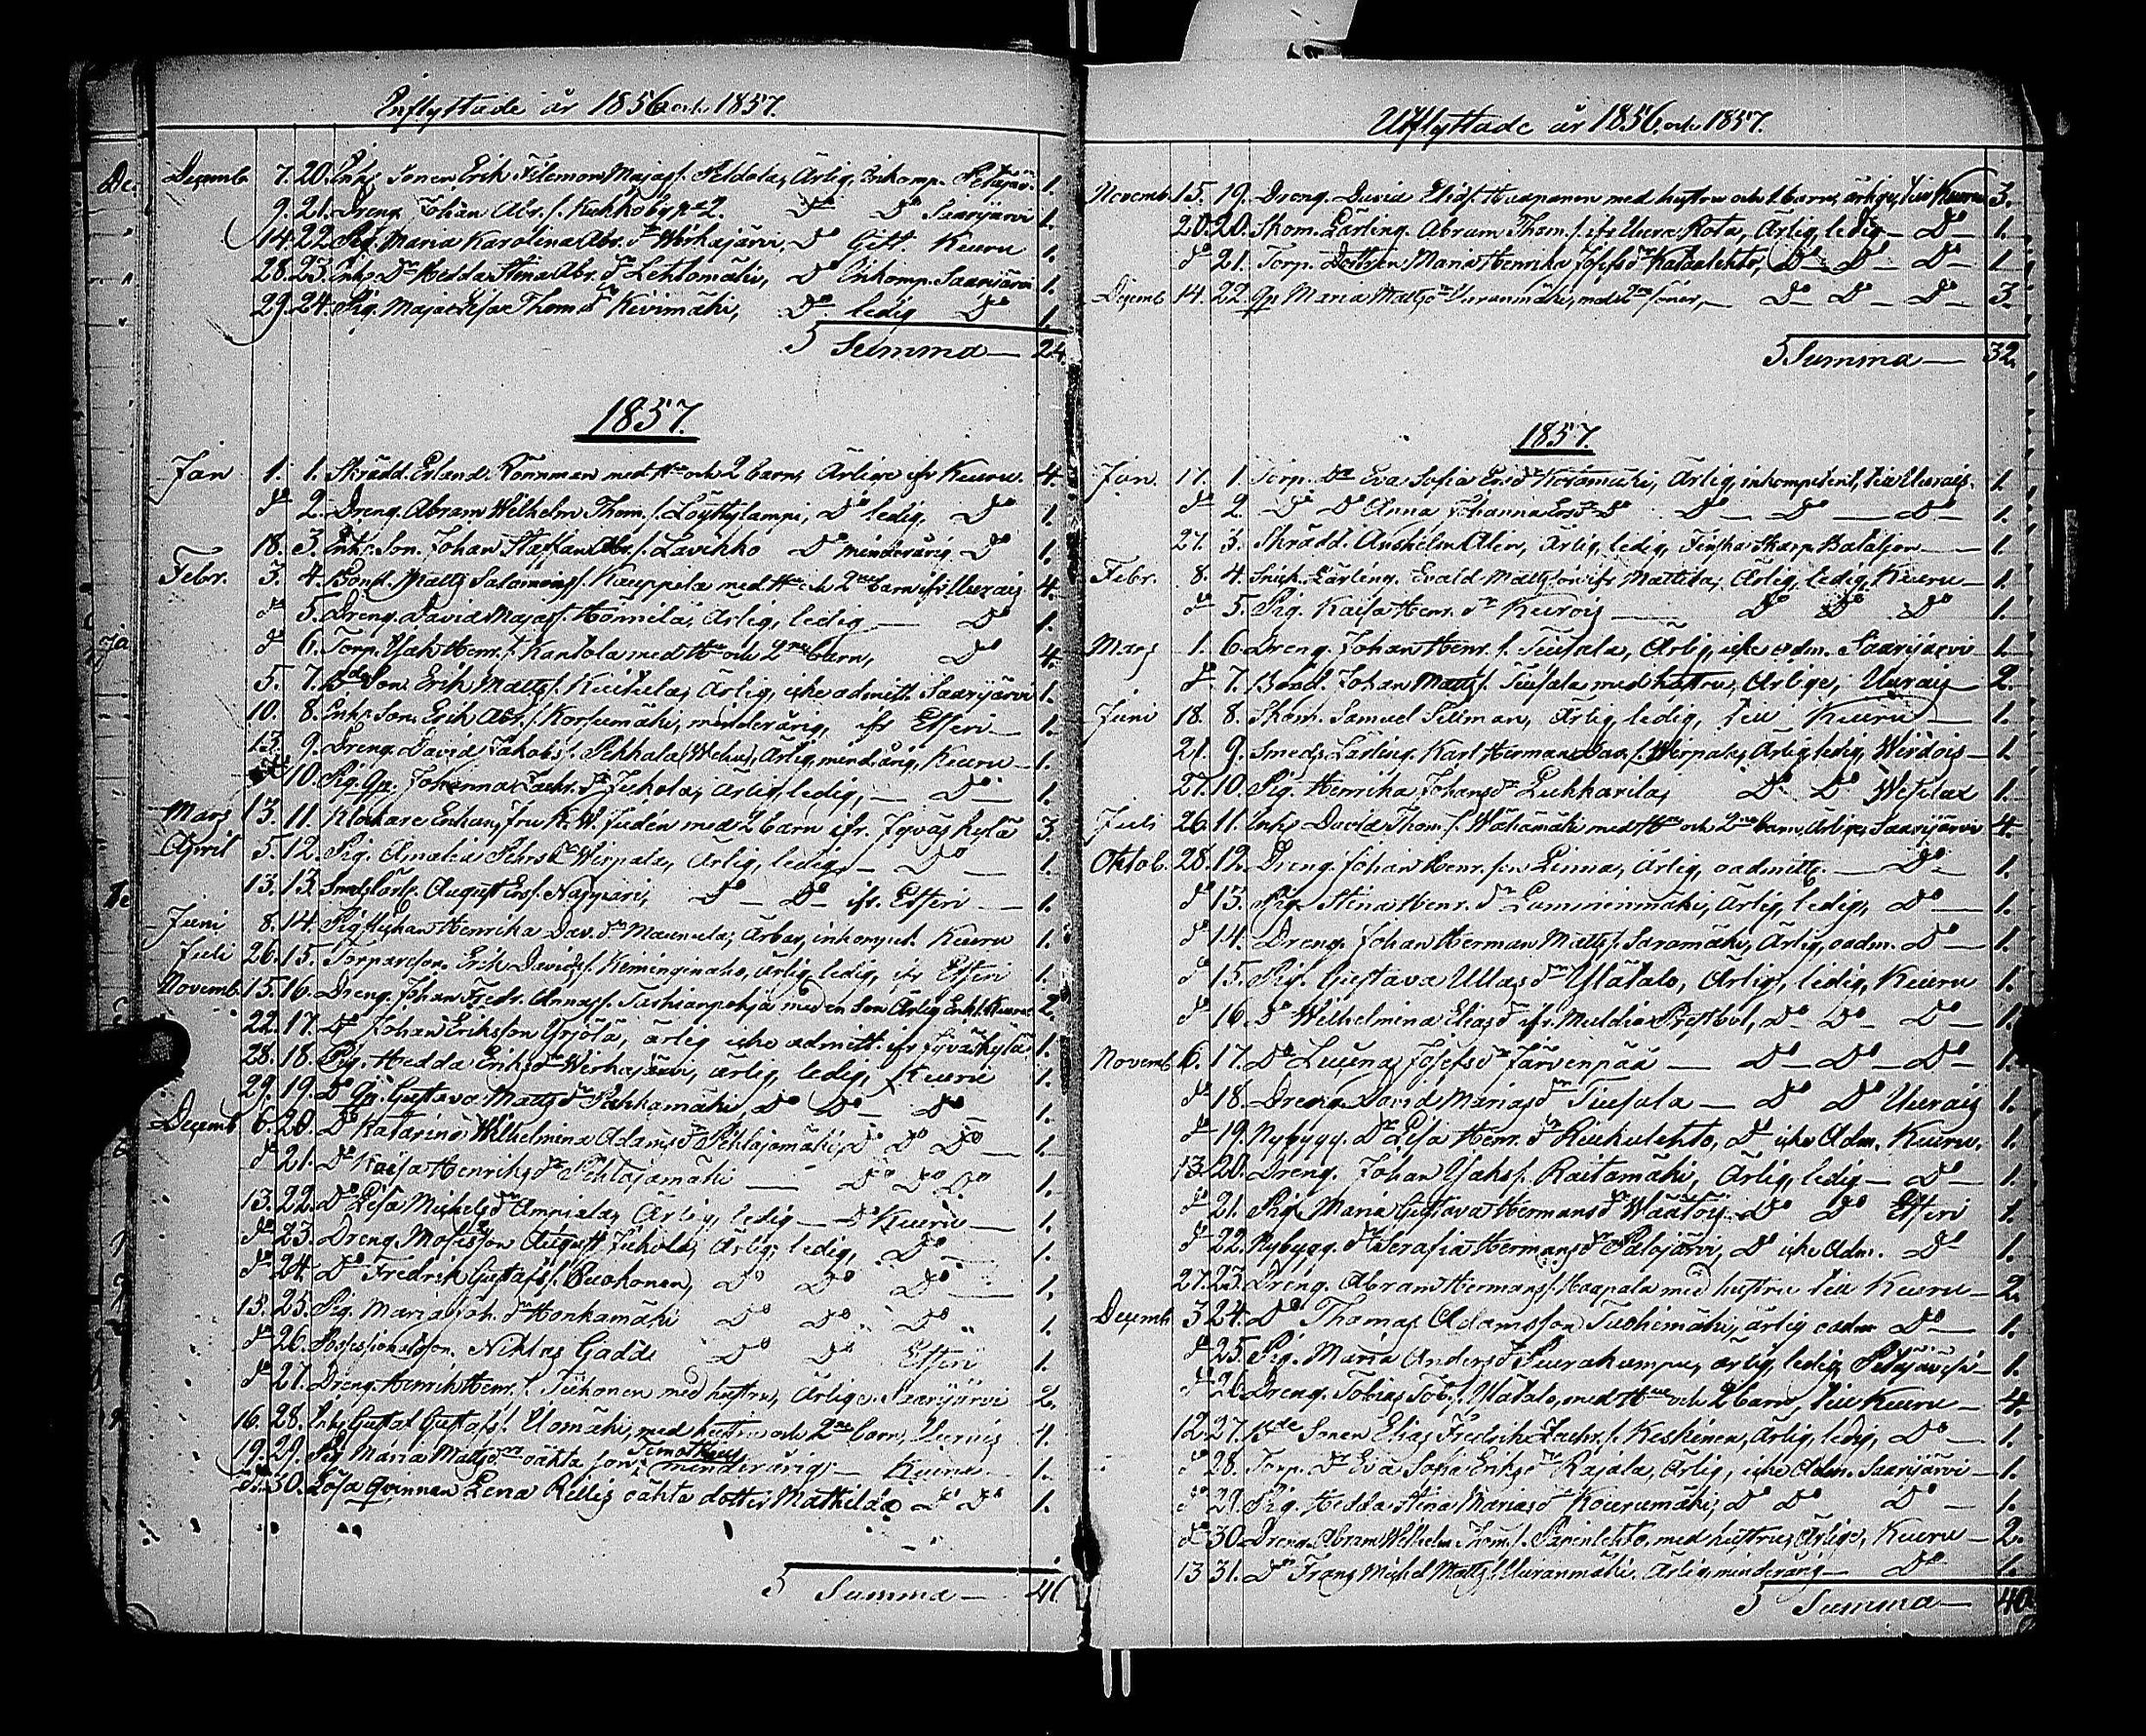 Inflyttade år 1856 och 1857.
Decemb 7. 20. Inhs Sonen Erik Filemon Majas s. Peldola, Ärlig, Inkomp. Petäjäv. 1.
9. 21. Dreng Johan Abr. s. Kuhkoby No 2. Do Do Saarijärvi 1.
14. 22. Pig. Maria Karolina Abr. dr Wirhajärvi, Do Gift Keuru 1.
28. 23. Inh. Dr Hedda Stina Abr. dr Lehtomäki, Do Inkomp. Saarijärvi 1.
29. 24. Pig. Maja Lisa Thom. dr Kivimäki, Do ledig Do 1.
Summa — 24.
1857.
Jan 1. 1. Skrädd. Erland Rönnman med Hu och 2 barn, Ärlige ifr Keuru. 4.
do 2. Dreng. Abram Wilhelm Thom. s. Löyttylampi, Do ledig, Do 1.
18. 3. Enk. Son. Johan Staffan Abr. s. Lavikko Do minderårig Do 1.
Febr. 3. 4. Bons. Matts Salomons s. Kauppila med Hu och 2ne barn ifr Uurais 4.
do 5. Dreng. David Majas s. Hörnilä, Ärlig, ledig — Do 1.
do 6. Torp. Isak Henr. s. Kantola med Hu och 2ne barn, Do 4.
5. 7. Bde Son Erik Matts s. Kuikula, Ärlig, icke admitt. Saarijärvi 1.
10. 8. Enk. Son. Erik Abr. s. Korsumäki, minderårig, ifr Etseri — 1.
13. 9. Dreng. David Jakobs s. Pihkala (Wehu), Ärlig, mind. årig, Keuru — 1.
do 10. Pig. Qv. Johanna Zachr. dr Jukola, Ärlig, ledig, — Do — 1.
Mars 13. 11. Klockare Enkan, fru K. W. Judén med 2 barn ifr. Jyväskylä 3.
April 5. 12. Pig. Amalia Pehrs dr Wirpala, Ärlig, ledig — Do — 1.
13. 13. Smeds Lärl. August Ers s. Nappari, Do — Do — ifr. Etseri — 1.
Juni 8. 14. Pigflickan Henrika Dav. dr Maunula, Ärbar, inkomput. Keuru 1.
Juli 26. 15. Torpareson. Erik Davids s. Keminginaho, Ärlig, ledig, ifr Etseri 1.
Novemb. 15. 16. Dreng. Johan Fredr. Annas s. med en Son Ärlig Enkl. Keuru 2.
22. 17. Do Johan Eriksson Yrjölä, ärlig icke admitt. ifr Jyväskylä. 1.
28. 18. Pig. Hedda Eriks dr Wirhajärvi, ärlig, ledig, Keuru 1.
29. 19. Do Qv. Gustava Matts dr Pahkamäki, Do Do — Do 1.
Decemb 6. 20. Do Katarina Wilhelmina Adams dr Pihlajamäki, Do Do Do 1.
do 21. Do Kaisa Henriks dr Pihlajamäki — Do Do Do 1.
13. 22. Do Lisa Michels dr Ampiala, Ärlig, ledig — Do Keuru — 1.
do 23. Dreng Mosisson August Jukola, Ärlig, ledig, Do — 1.
do 24. Do Fredrik Gustafs s. Ruohonen, Do Do Do — 1.
13. 25. Pig. Maria Joh. dr Honkamäki Do Do Do 1.
do 26. Possessionatsson. Niklas Gadd Do Do Etseri 1.
do 27. Dreng. Henrik Henr. s. Tiihonen med hustru, Ärlige. Saarijärvi 2.
16. 28. Inhs Gustaf Gustafs s. Uomäki, med hustru och 2ne barn, Uurais 4.
19. 29. Pig Maria Matts dr oäkta son Timotheus minderårig — Keuru — 1.
do 30. Lösa Qvinnan Lena Rillis oäkta dotter Mathilda Do Do 1.
Summa — 46
Utflyttade år 1856. och 1857.
Novemb. 15. 19. Dreng. David Elias s. Haapanen med hustru och 1 barn, ärlige, till Keuru 3.
20. 20. Skom. Lärling. Abram Thom. s. ifr Uura Rota, Ärlig, ledig — Do — 1.
do 21. Torp. Dottren Maria Henrika Josefs dr Katalehto, Do — Do — Do — 1.
Decemb 14. 22. Qv Maria Matts dr Uuranmäki, med 2ne söner, — Do — Do — Do — 3.
Summa — 32.
1857.
Jan. 17. 1. Torp. Dr Eva Sofia Ers dr Kotamäki, Ärlig, inkompetent, till Uurais. 1.
do 2. Do Do Anna Johanna Ers dr Do Do — Do — Do — 1.
27. 3. Skrädd. Anshelm Alin, Ärlig, ledig, Finska Skarp. Bataljon — 1.
Febr. 8. 4. Snick. Lärling. Evald Mattsson ifr Mattila, Ärlig, ledig, Keuru — 1.
do 5. Pig. Kaisa Henr. dr Keurois — Do Do Do 1.
Mars 1. 6. Dreng. Johan Henr. s. Tuisala, Ärlig, icke adm. Saarijärvi 1.
do 7. Bond. Johan Matts s. Tuisala med hustru, Ärlige, Uurais 2.
Juni 18. 8. Skom. Samuel Tillman, Ärlig, ledig, till Keuru — 1.
21. 9. Smeds Lärling. Karl Herman Dav. s. Wirpala, Ärlig, ledig, Wirdois — 1.
27. 10. Pig. Henrika Johans dr Liukkarila, Do Do Wesilax 1.
Juli 26. 11. Inhs David Thom. s. Wähämäki med Hu och 2ne barn, Ärlige, Saarijärvi 4.
Oktob. 28. 12. Dreng. Johan Henr. son Linna, Ärlig, oadmitt. — Do — 1.
do 13. Pig. Stina Henr. dr Lamminmäki, Ärlig, ledig, Do — 1.
do 14. Dreng. Johan Herman Matts s. Saramäki, Ärlig, oadm. Do — 1.
do 15. Pig. Gustava Ullas dr Ylätalo, Ärlig, ledig, Keuru 1.
do 16. Do Wilhelmina Elias dr ifr. Multia Prestbol, Do — Do — Do — 1.
Novemb 6. 17. Do Luisa Josefs dr Järvenpää — Do — Do — Do — 1.
do 18. Dreng. David Marias s. Tuisala — Do Do Uurais 1.
do 19. Nybygg. Dr Lisa Henr. dr Riukulehto, Do icke Adm. Keuru. 1.
13. 20. Dreng. Johan Isaks s. Raitamäki, Ärlig, ledig — Do — 1.
do 21. Pig. Maria Gustava Hermans dr Do Do Etseri 1.
do 22. Nybygg. Dr Serafia Hermans dr Palojärvi, Do icke Adm. Do — 1.
27. 23. Dreng. Abram Hermans s. Haapala med hustru till Keuru — 2.
Decemb 3. 24. Do Thomas Adamsson Tuohimäki, ärlig oadm Do — 1.
do 25. Pig. Maria Anders dr Peurakumpu, ärlig, ledig, Petäjävesi — 1.
do 26. Dreng. Tobias Tob. s. Ylätalo, med Hu och 2 barn, till Keuru — 4.
12. 27. Bde Sonen Elias Fredrik Zachr. s. Keskinen, Ärlig, ledig, Do — 1.
do 28. Torp. Dr Eva Sofia Eriks dr Rajala, Ärlig, icke Adm. Saarijärvi — 1.
do 29. Pig. Hedda Stina Marias dr Kourumäki, Do Do Do — 1.
do 30. Dreng. Abram Wilhelm Thom. s. med hustru, Ärlige, Keuru — 2.
13 31. Do Frans Michel Matts s. Uuranmäki, Ärlig, minderårig — Do — 1.
Summa — 40